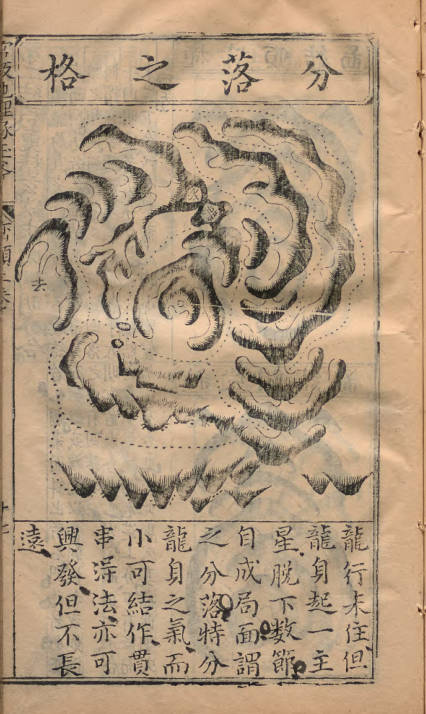 分落之格
去
龍行未住但
龍身起一主
星脫下数節
自成局面謂
之分落特分
龍身之氣而
小可結作貫
串淂法亦可
興發但不長
遠